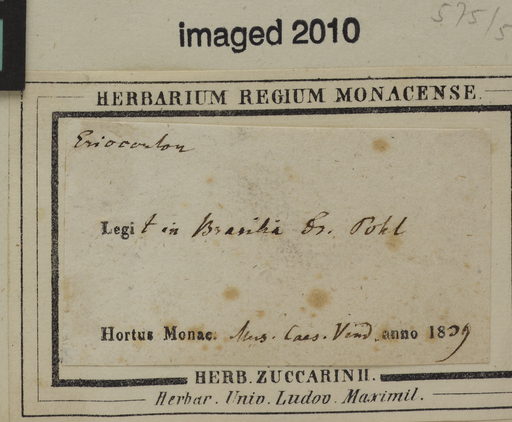 575/5
imaged 2010
HERBARIUM REGIUM MONACENSE.
Eriocaulon
Legit in Brasilia Dr. Pohl
Hortus Monac. Mus. Caes. Vind. anno 1839
HERB. ZUCCARINII.
Herbar. Univ. Ludov. Maximil.